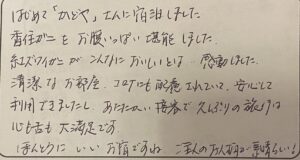 はじめて「かどや」さんに宿泊しました
香住ガニをお腹いっぱい堪能しました
紅ズワイガニがこんなにおいしいとは… 感動しました。
清潔なお部屋、コロナにも配慮されていて、安心して
利用できましたし、あたたかい接客でえんぶりの旅は
心も舌も大満足です
ほんとうに いいお宿ですね